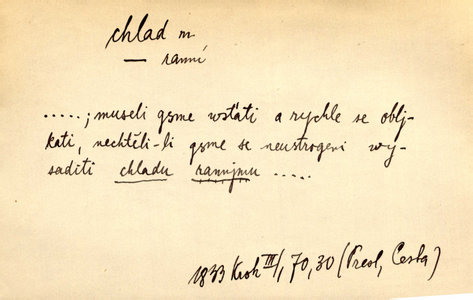 chlad m
— ranní
.....; museli gsme wstáti a rychle se oblj-
kati, nechtěli-li gsme se neustrogeni wy-
saditi chladu rannjmu .....
1833 Krok III/1, 70, 30 (Presl, Cesta)